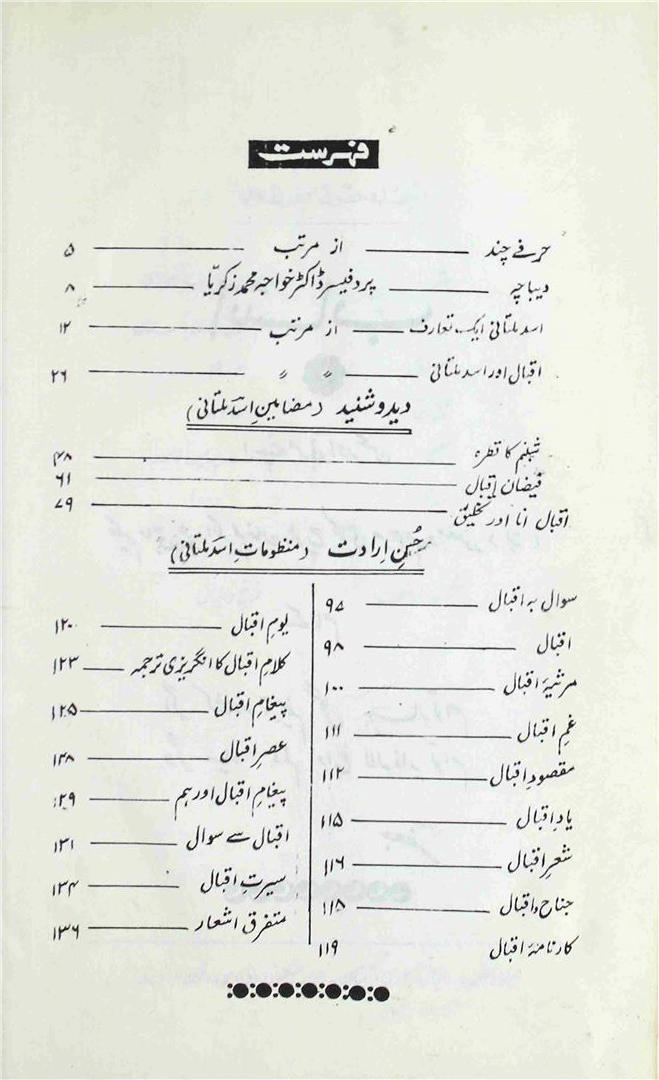 فہرست
حرفے چند ——— از مرتب ——— ۵
دیباچہ ——— پروفیسر ڈاکٹر خواجہ محمد زکریا ——— ۸
اسد ملتانی ایک تعارف ——— از مرتب ——— ۱۲
اقبال اور اسد ملتانی ——— 〃 〃 ——— ۲۶
دید و شنید (مضامینِ اسد ملتانی)
شبنم کا قطرہ ——— ۴۸
فیضانِ اقبال ——— ۶۱
اقبال انا اور تخلیق ——— ۷۹
حُسنِ اِرادت (منظوماتِ اسد ملتانی)
سوال بہ اقبال ——— ۹۵
اقبال ——— ۹۸
مرثیۂ اقبال ——— ۱۰۰
غمِ اقبال ——— ۱۱۱
مقصودِ اقبال ——— ۱۱۲
یادِ اقبال ——— ۱۱۵
شعرِ اقبال ——— ۱۱۶
جناح و اقبال ——— ۱۱۸
کارنامۂ اقبال ۱۱۹
یومِ اقبال ——— ۱۲۰
کلامِ اقبال کا انگریزی ترجمہ ——— ۱۲۳
پیغامِ اقبال ——— ۱۲۵
عصرِ اقبال ——— ۱۲۸
پیغامِ اقبال اور ہم ——— ۱۲۹
اقبال سے سوال ——— ۱۳۱
سیرتِ اقبال ——— ۱۳۴
متفرق اشعار ——— ۱۳۶